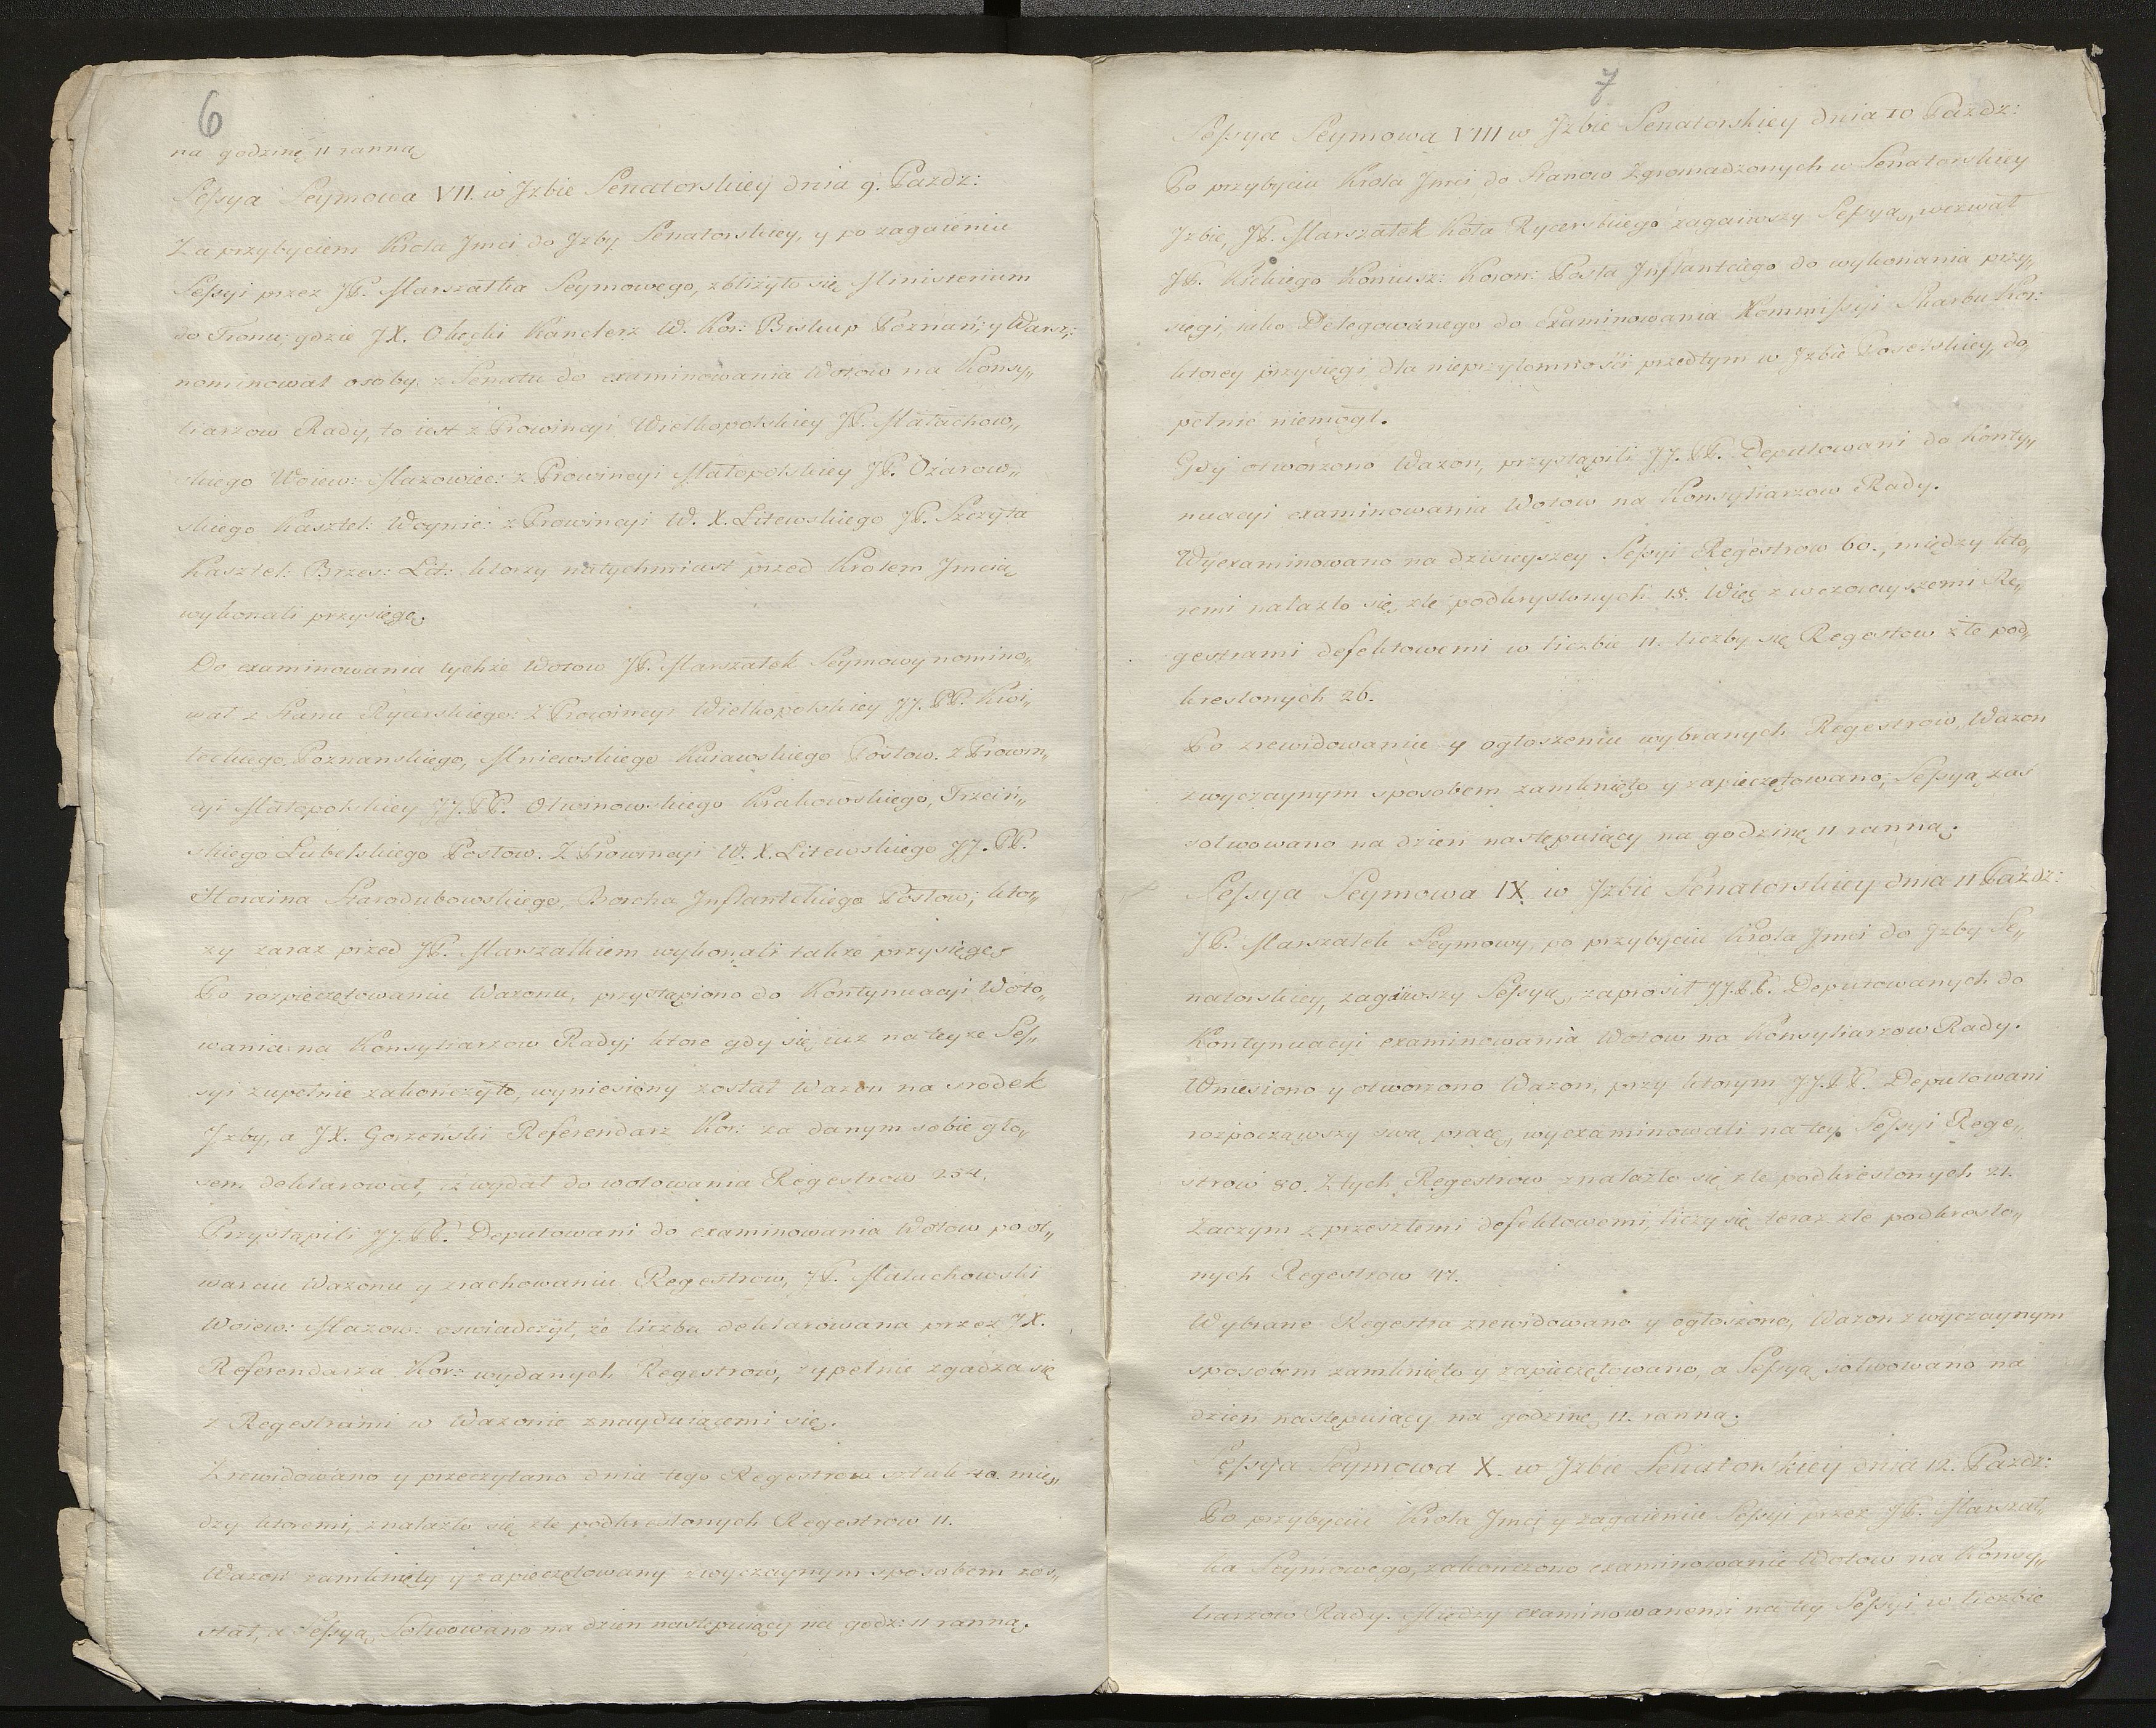 6
na godzinę 11 ranną
Sessya Seymowa VII. w Jzbie Senatorskiey dnia 9. Pazdz:
Za przybyciem Krola Jmci do Jzby Senatorskiey, y po zagaieniu
Sessyi przez JP. Marszałka Seymowego, zbliżyło się Ministerium
do Tronu; gdzie JX. Okęcki Kanclerz W. Kor: Biskup Poznań: y Warsz:
nominował osoby z Senatu do examinowania Wotow na Konsy„
liarzow Rady, to iest z Prowincyi Wielkopolskiey JP. Małachow„
skiego Woiew: Mazowiec: z Prowincyi Małopolskiey JP. Ożarow„
skiego Kasztel: Woynic: z Prowincyi W. X. Litewskiego JP. Szczyta
Kasztel: Brzes: Lit: ktorzy natychmiast przed Krolem Jmcią
wykonali przysięgę.
Do examinowania tychże Wotow JP. Marszałek Seymowy nomino„
wał z Stanu Rycerskiego: z Prowincyi Wielkopolskiey JJ. PP. Kwi„
leckiego Poznanskiego, Mniewskiego Kuiawskiego Posłow. z Prowin„
cyi Małopolskiey JJ. PP. Otwinowskiego Krakowskiego, Trzciń„
skiego Lubelskiego Posłow. Z Prowincyi W. X. Litewskiego JJ. PP.
Horaina Starodubowskiego, Borcha Jnflantskiego Posłow; kto„
zy zaraz przed JP. Marszałkiem wykonali także przysięgę.
Po rozpieczętowaniu Wazonu, przystąpiono do Kontynuacyi Woto„
wania na Konsyliarzow Rady; ktore gdy się iuz na teyże Ses„
syi zupełnie zakonczyło, wyniesiony został Wazon na srodek
Jzby, a JX. Gorzeński Referendarz Kor: za danym sobie gło„
sem deklarował, iż wydał do wotowania Regestrow 254.
Przystąpili JJ. PP. Deputowani do examinowania Wotow po ot„
warciu Wazonu y zrachowaniu Regestrow, JP. Małachowski
Woiew: Mazow: oswiadczył, że liczba deklarowana przez JX.
Referendarza Kor: wydanych Regestrow, zypełnie zgadza się
z Regestrami w Wazonie znayduiącemi się.
Zrewidowano y przeczytano dnia tego Regestrow sztuk 40. mię„
dzy ktoremi, znalazło się złe podkreslonych Regestrow 11.
Wazon zamknięty y zapieczętowany zwyczaynym sposobem zos„
stał, a Sessyą Solwowano na dzien następuiący na godz: 11 ranną.
7
Sessya Seymowa VIII w Jzbie Senatorskiey dnia 10 Pazdz:
Po przybyciu Krola Jmci do Stanow Zgromadzonych w Senatorskiey
Jzbie, JP. Marszałek Koła Rycerskiego zagaiwszy Sessyą, wezwał
JP. Kickiego Koniusz: Koron: Posła Jnflantckiego do wykonania przy„
sięgi, iako Delegowanego do examinowania Kommissyi Skarbu Kor:
ktorey przysięgi dla nieprzytomności przedtym w Jzbie Poselskiey, do„
pełnić niemogł.
Gdy otworzono Wazon, przystąpili JJ. PP. Deputowani do Konty„
nuacyi examinowania Wotow na Konsyliarzow Rady.
Wyexaminowano na dzisieyszey Sessyi Regestrow 60., między kto„
remi nalazło się złe podkryslonych 15. Więc z wczorayszemi Re„
gestrami defektowemi w liczbie 11. liczby się Regestow złe pod„
kreslonych 26.
Po zrewidowaniu y ogłoszeniu wybranych Regestrow, Wazon
zwyczaynym sposobem zamknięto y zapieczętowano; Sessyą zaś
solwowano na dzień następuiący na godzinę 11 ranną.
Sessya Seymowa IX. w Jzbie Senatorskiey dnia 11 Pazdz:
JP. Marszałek Seymowy, po przybyciu Krola Jmci do Jzby Se„
natorskiey, zagaiwszy Sessyą, zaprosił JJ. PP. Deputowanych do
Kontynuacyi examinowania Wotow na Konsyliarzow Rady.
Wniesiono y otworzono Wazon, przy ktorym JJ. PP. Deputowani
rozpocząwszy swą pracę, wyexaminowali na tey Sessyi Rege„
strow 80. Z tych Regestrow znalazło się złe podkreslonych 21.
Zaczym z przeszłemi defektowemi, liczy się teraz złe podkreslo„
nych Regestrow 47.
Wybrane Regestra zrewidowano y ogłoszono, Wazon zwyczaynym
sposobem zamknięto y zapieczętowano, a Sessyą solwowano na
dzien następuiący na godzinę 11. ranną.
Sessya Seymowa X. w Jzbie Senatorskiey dnia 12. Pazdz:
Po przybyciu Krola Jmci y zagaieniu Sessyi przez JP. Marszał„
ka Seymowego, zakonczono examinowanie Wotow na Konsy„
liarzow Rady. Miedzy examinowanemi na tey Sessyi w liczbie